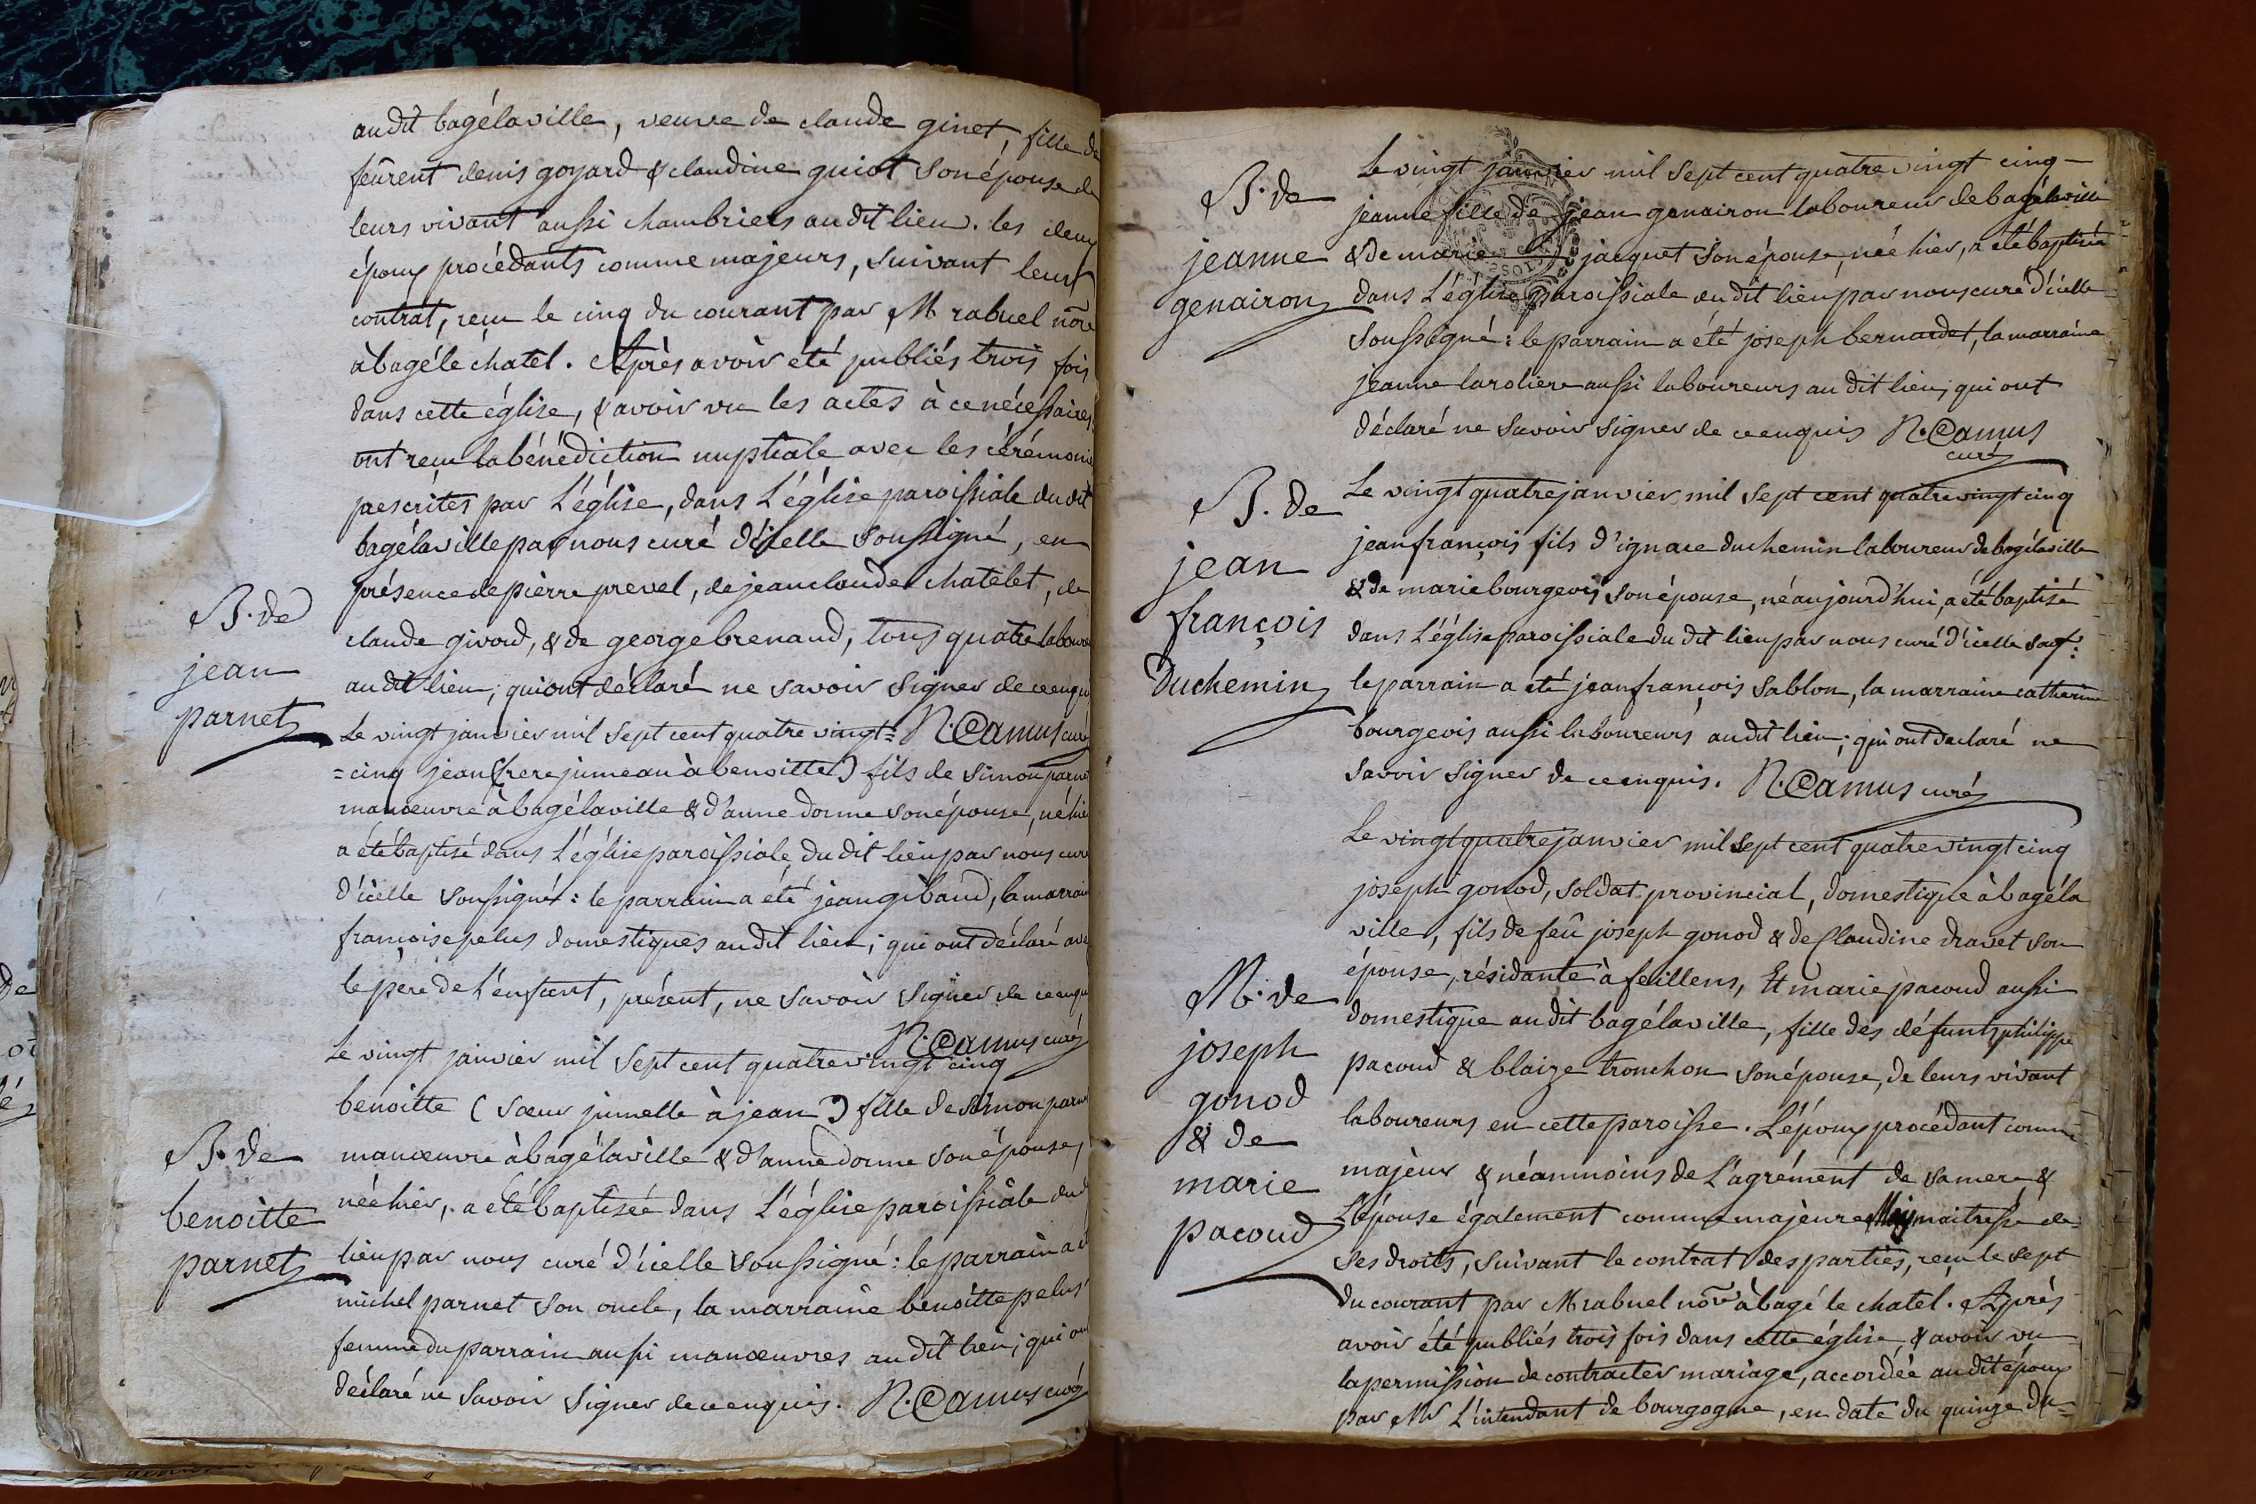 audit bagélaville, veuve de claude ginet, fille de
feûrent denis goyard & claudine guiot son épouse de
leurs vivant aussi chambriers audit lieu. les deux
époux procédants comme majeurs, suivant leur
contrat, reçu le cinq du courant par M rabuel nõre
à bagé le chatel. Après avoir eté publiés trois fois
dans cette église, & avoir vu les actes à ce nécessaires,
ont reçu la bénédiction nuptiale avec les cérémonie
prescrites par L'église, dans L'église paroissiale du dit
bagélaville par nous curé d'icelle soussigné, en
présence de pierre prevel, de jean claude chatelet, de
claude givord, & de george brenaud, tous quatre laboure
audit lieu; qui ont déclaré ne savoir signer de ce enquis
N. Camus curé
B. de
jean
parnet
Le vingt janvier mil sept cent quatre vingt=
=cinq jean (frere jumeau à benoitte) fils de simon parne
manœuvre à bagélaville & d'anne dorme son épouse, né hier
a été baptisé dans L'église paroissiale du dit lieu par nous curé
d'icelle soussigné: le parrain a été jean gibaud, la marrain
françoise pelus domestiques audit lieu; qui ont déclaré ave
le pere de l'enfant, présent, ne savoir signer de ce enqu
N. Camus curé
B. de
benoitte
parnet
Le vingt janvier mil sept cent quatre vingt cinq
benoitte (sœur jumelle à jean) fille de simon parne
manœuvre à bagélaville & d'anne dorme son épouse,
née hier, a été baptisée dans L'église paroissiale dud
lieu par nous curé d'icelle soussigné: le parrain a é
michel parnet son oncle, la marraine benoitte pelus
femme du parrain aussi manœuvres audit lieu; qui on
déclaré ne savoir signer de ce enquis. N. Camus curé
B. de
jeanne
genairon
Le vingt janvier mil sept cent quatre vingt cinq
jeanne fille de jean genairon laboureur de bagélaville
& de marie jacquet son épouse, née hier, a été baptisée
dans L'église paroissiale du dit lieu par nous curé d'icelle
soussigné: le parrain a été joseph bernardet, la marraine
jeanne laroliere aussi laboureurs au dit lieu; qui ont
déclaré ne savoir signer de ce enquis N. Camus
curé
B. de
jean
françois
Duchemin
Le vingt quatre janvier mil sept cent quatre vingt cinq
jean françois fils d'ignace duchemin laboureur de bagélaville
& de marie bourgeois son épouse, né aujourd'hui, a été baptisé
dans L'église paroissiale du dit lieu par nous curé d'icelle
le parrain a été jean françois sablon, la marraine catherine
bourgeois aussi laboureurs audit lieu; qui ont declaré ne
savoir signer de ce enquis. N. Camus curé
M. de
joseph
gonod
& de
marie
pacoud
Le vingt quatre janvier mil sept cent quatre vingt cinq
joseph gonod, soldat provincial, domestique à bagéla
ville, fils de feû joseph gonod & de Claudine dravet son
épouse, résidante à feillens, Et marie pacoud aussi
domestique audit bagélaville, fille des défunts philippe
pacoud & blaize tronchon son épouse, de leurs vivant
laboureurs en cette paroisse. L'époux procédant comme
majeur & néanmoins de L'agrément de sa mere &
L'épouse également comme majeure maitresse de
ses droits, suivant le contrat des parties, reçu le sept
du courant par M rabuel nõre à bagé le chatel. Après
avoir été publiés trois fois dans cette église & avoir vu
la permission de contracter mariage, accordée audit époux
par Mr L'intendant de bourgogne, en date du quinze du=